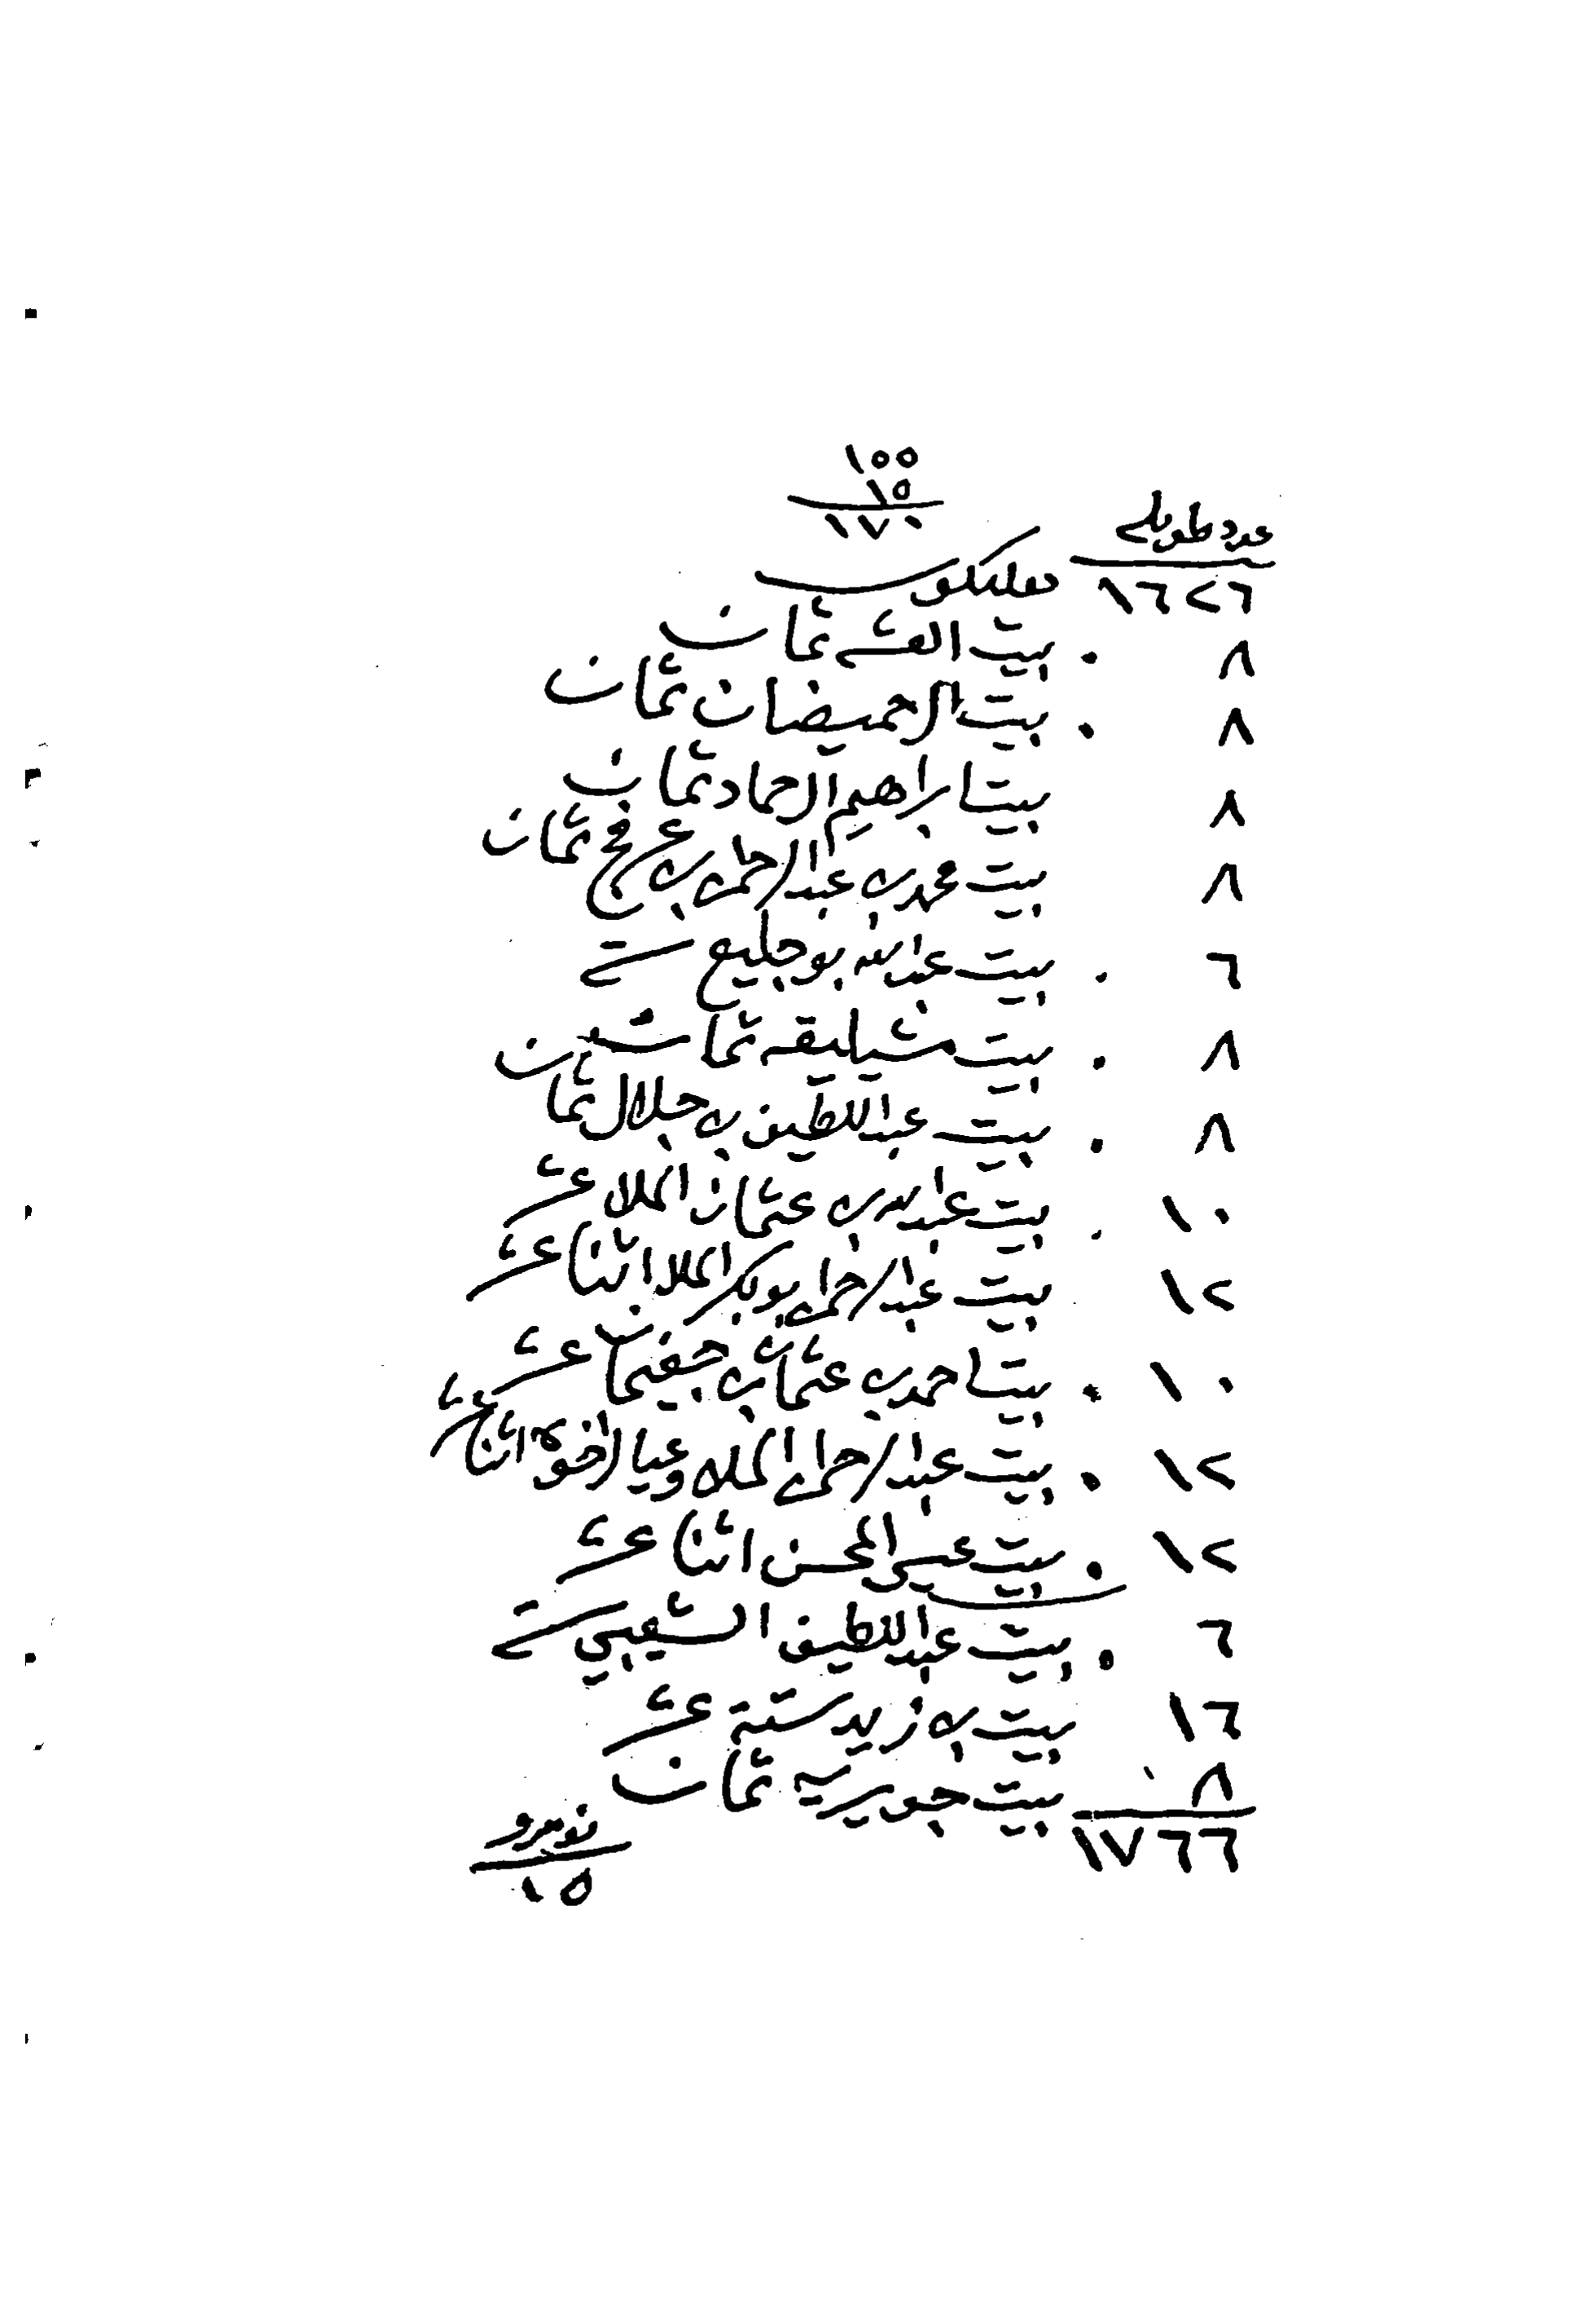 ١٥٥
١٥
١٧٠
عدد طويله
١٦٢٦
٨ . بيت العـ ثمان
٨ . بيت الحميضان ثمان
٨ بيت ابراهيم الحماد ثمان
٨ بيت محمد بن عبدالرحمن بن ثمان
٦ . بيت عبدالله بو جليع ستة
٨ . بيت مشيليقه ثمان
٨ . بيت عبداللطيف بن جلال ثمان
١٠ . بيت عبدالله بن عثمان الملا عشر
١٢ بيت عبدالرحمن بوبكر الملا اثنا عشر
١٠ . بيت احمد بن عثمان بن جغيمان عشر
١٢ . بيت عبدالرحمن الملا وعيال اخوه اثنا عشر
١٢ . بيت عيسى المحسن اثنا عشر
٦ . بيت عبداللطيف الشعيبي ستة
١٦ بيت بن زيد ستة عشر
٨ بيت جويريه ثمان
١٧٦٦
نومرو
١٥